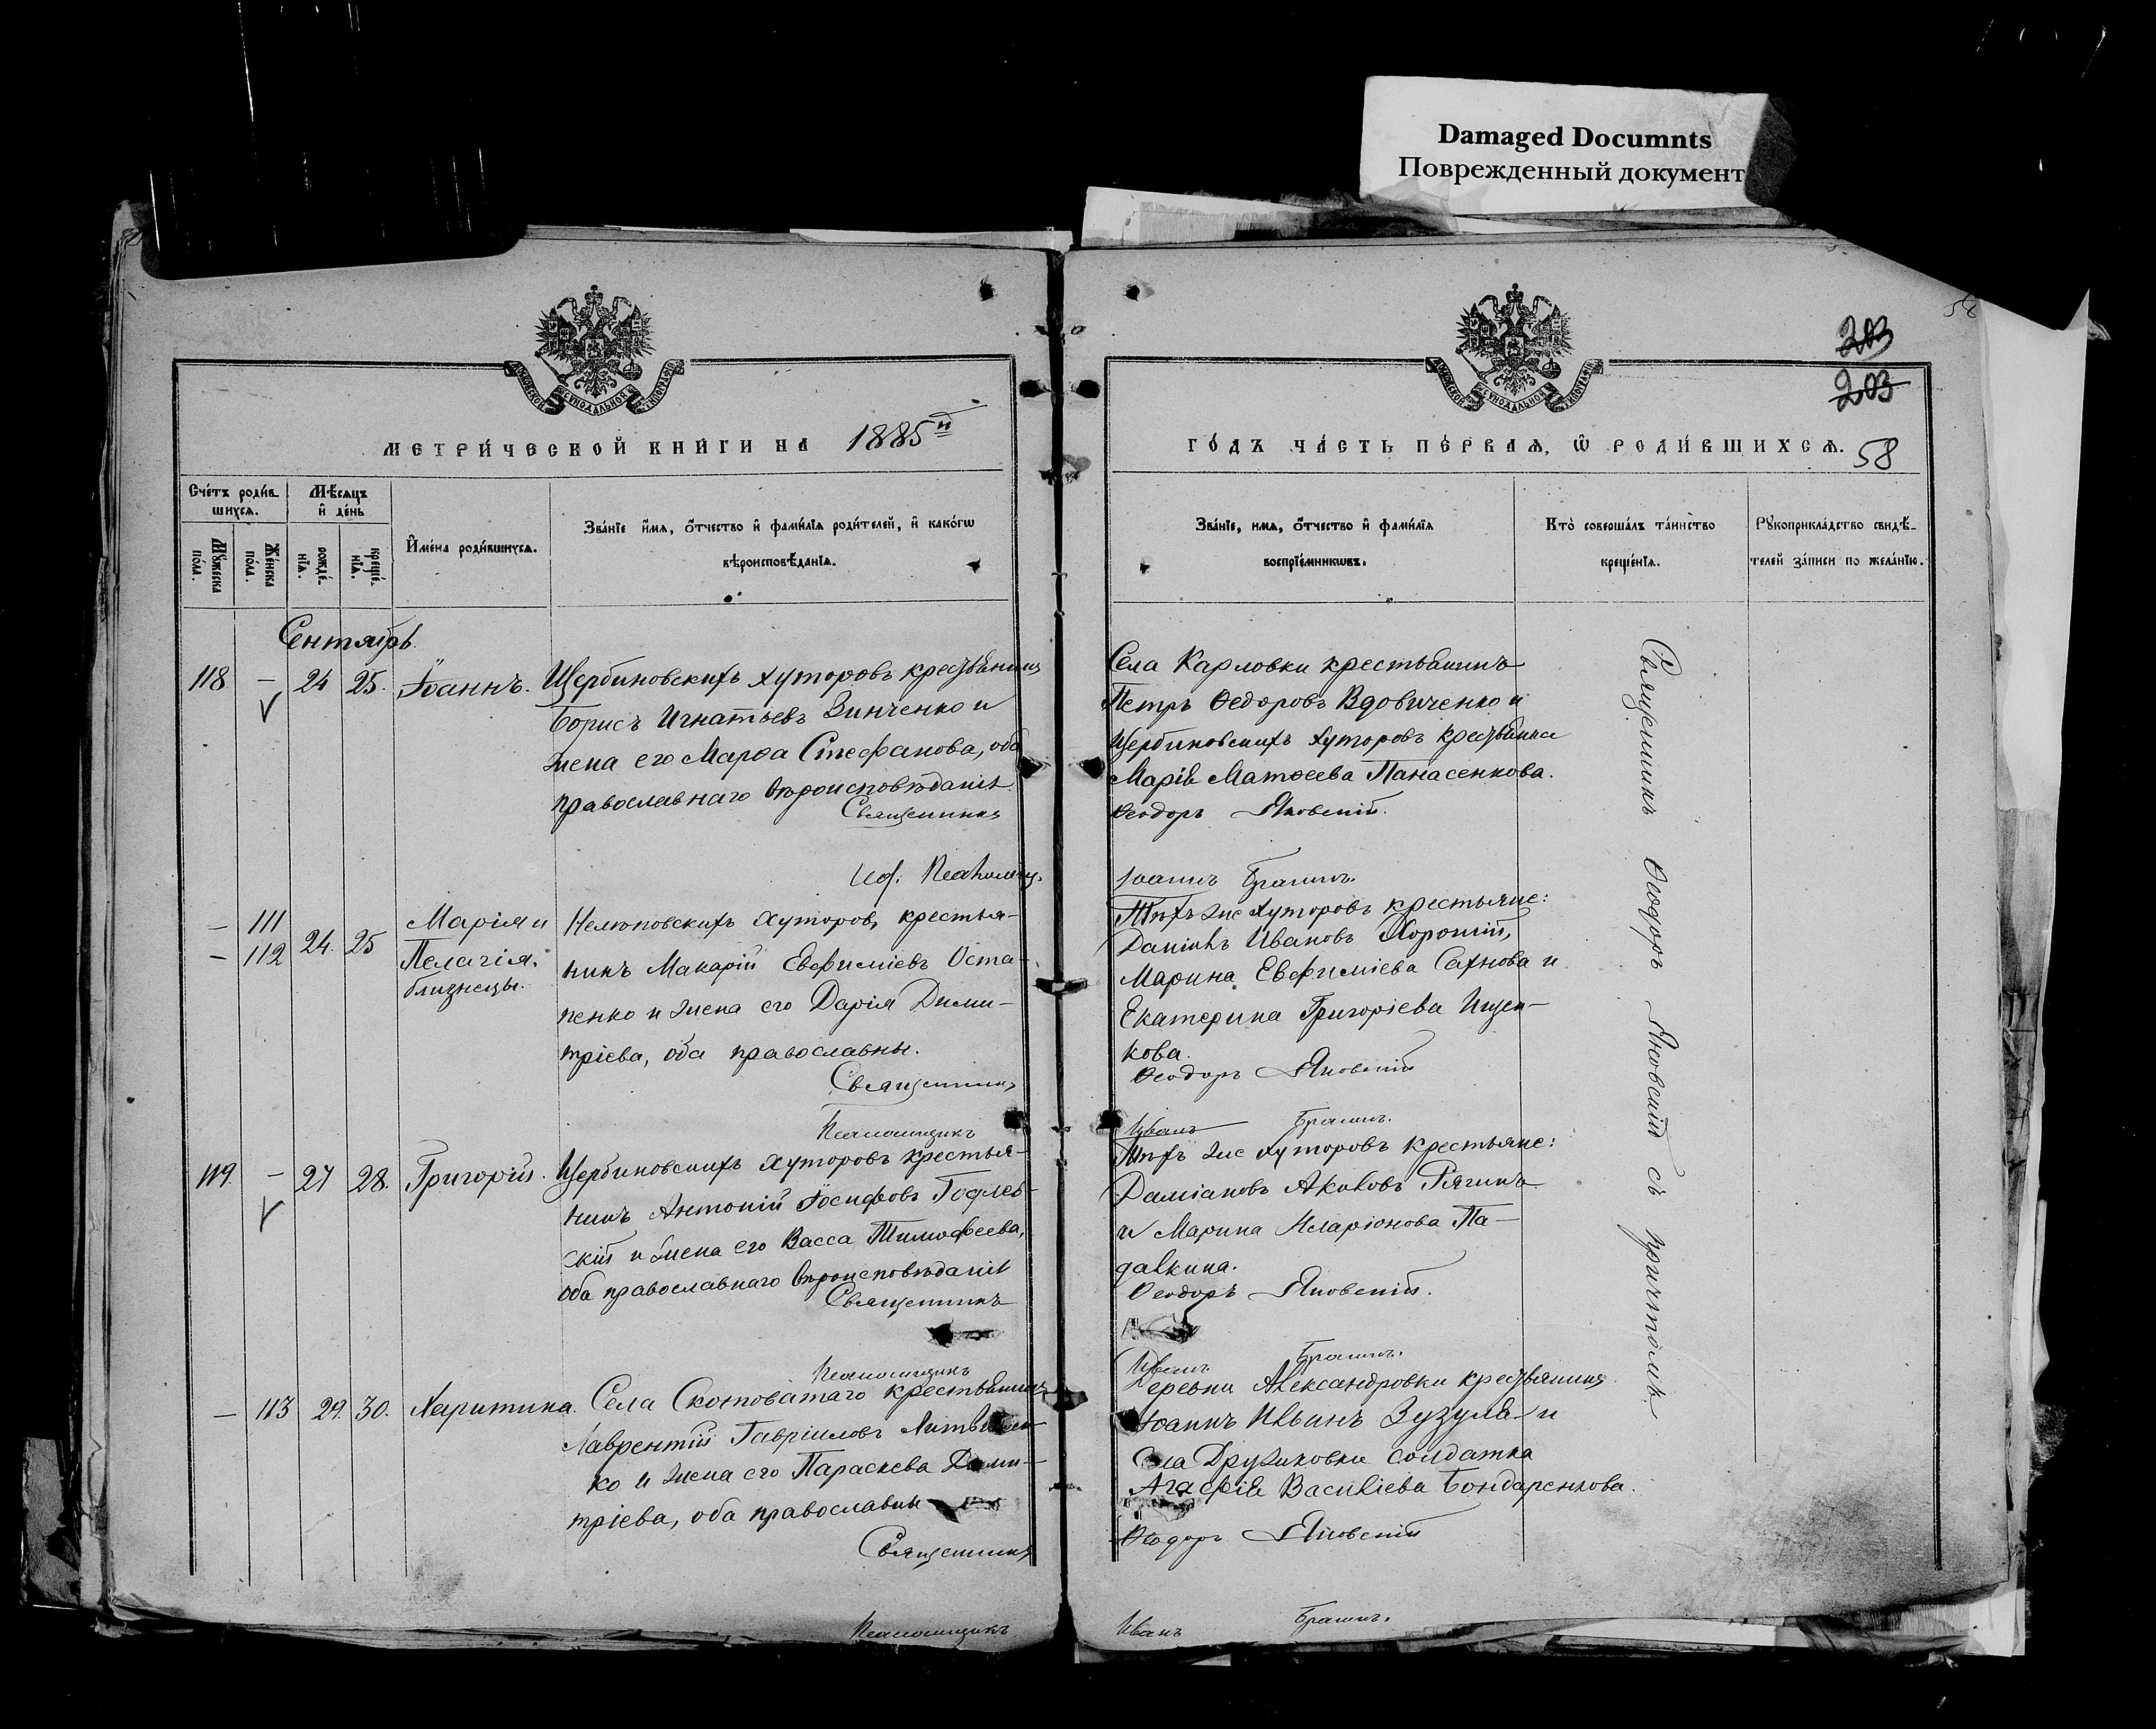 Damaged Documnts
Поврежденный документ
58
203
203
МЕТРИ́ЧЕСКОЙ КНИ́ГИ НА 1885й
ГО́ДЪ ЧА́СТЬ ПЕ́РВАЯ, Ѡ РОДИ́ВШИХСЯ.
58
Сче́тъ роди́в-
шихся.
Мѣ́сяцъ
и҆ де́нь
Му́жеска
по́ла.
Же́нска
по́ла.
рожде́-
нїя.
креще́-
нїя.
И҆мена̀ роди́вшихся.
Зва́нїе и҆́мя, ѻ҆́тчество и҆ фами́лїя роди́телей, и҆ како́гѡ
вѣроисповѣ́данїя.
Зва́нїе, имя, ѻ҆́тчество и҆ фами́лїя
воспрїе́мникѡвъ.
Кто̀ соверша́лъ та́инство
креще́нїя.
Рꙋкоприкла́дство свидѣ́-
телей за́писи по жела́нїю.
Сентябрь
118 – 24 25. Іоаннъ. Щербиновскихъ хуторовъ крестьянинъ
Борисъ Игнатьевъ Зинченко и
жена его Марѳа Стефанова, оба
православнаго вѣроисповѣданія
Священникъ
Села Карловки крестьянинъ
Петръ Ѳедоровъ Вдовиченко и
Щербиновскихъ хуторовъ крестьянка
Марія Матѳеева Панасенкова.
Ѳеодоръ Яновскій.
Іоаннъ Брагинъ.
– 111
– 112 24. 25 Марія и
Пелагія,
близнецы.
Нелѣповскихъ хуторовъ крестья-
нинъ Макарій Евфиміевъ Оста-
пенко и жена его Дарія Дими-
тріева, оба православны.
Священникъ
Псаломщикъ
Тѣхъ же хуторовъ крестьяне:
Даніилъ Ивановъ Хорошій,
Марина Евфиміева Сахнова и
Екатерина Григоріева Ищен-
кова.
Ѳеодоръ Яновскій
Иванъ Брагинъ.
119. – 27 28. Григорій. Щербиновскихъ хуторовъ крестья-
нинъ Антоній Іосифовъ
скій и жена его Васса Тимофеева,
оба православнаго вѣроисповѣданія
Священникъ
Псаломщикъ
Тѣхъ же хуторовъ крестьяне:
Даміановъ Аковъ Рягинъ
и Марина Иларіонова Па-
далкина.
Ѳеодоръ Яновскій.
Иванъ Брагинъ.
– 113 29. 30. Харитина. Села Скотоватаго крестьянинъ
Лаврентій Гавріиловъ Литвинен-
ко и жена его Параскева Дими-
тріева, оба православны
Священникъ
Псаломщикъ
Деревни Александровки крестьянинъ
Іоаннъ Зузуля и
Села Дружковки солдатка
Агафія Василіева Бондаренкова.
Ѳеодоръ Яновскій
Иванъ Брагинъ.
Священникъ Ѳеодоръ Яновскій съ причтомъ.